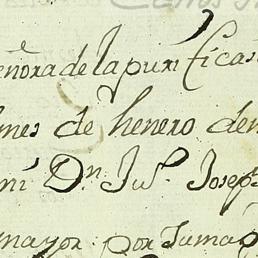 eñora de la puri ficas
mes de henero de
ni Dn. Jus. Joseph
mayor por su ma